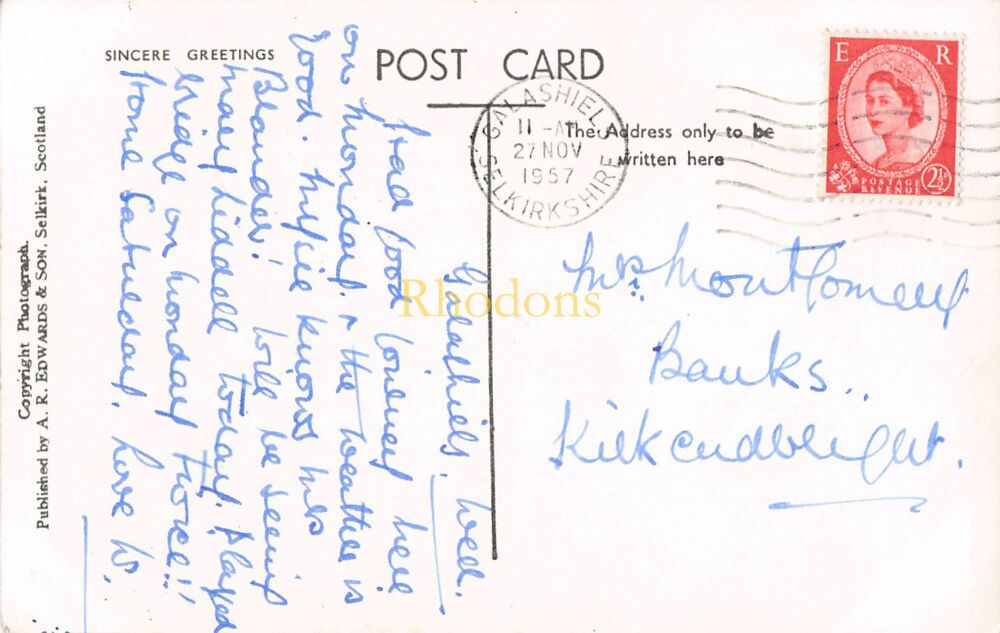 SINCERE GREETINGS
POST CARD
The Address only to be
written here
GALASHIELS
11 - AM
27 NOV
1957
SELKIRKSHIRE
E R
POSTAGE
REVENUE
2½
Galashiels. Wed.
Had good journey here
on Monday & the weather is
good. Myzie knows Mrs
Blander! Will be seeing
Mary Liddell today. Played
bridge on Monday twice!!
Home Saturday. Love W.
Mrs Montgomery
Banks..
Kirkcudbright.
Copyright Photograph.
Published by A. R. EDWARDS & SON, Selkirk, Scotland
Rhodons